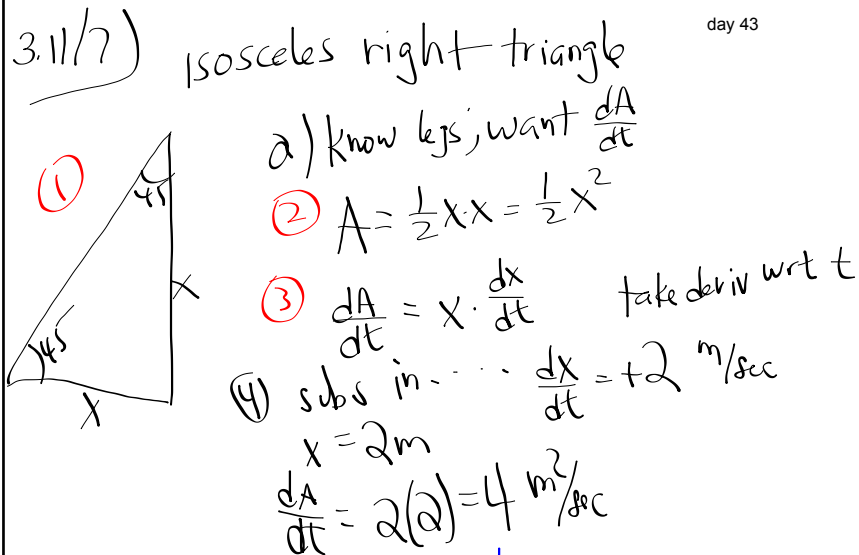 day 43
3.11/7) isosceles right triangle
a) know legs; want dA/dt
① 45
② A = 1/2 x·x = 1/2 x²
x
③ dA/dt = x · dx/dt take deriv wrt t
45
④ subs in.... dx/dt = +2 m/sec
x
x = 2m
dA/dt = 2(2) = 4 m²/sec